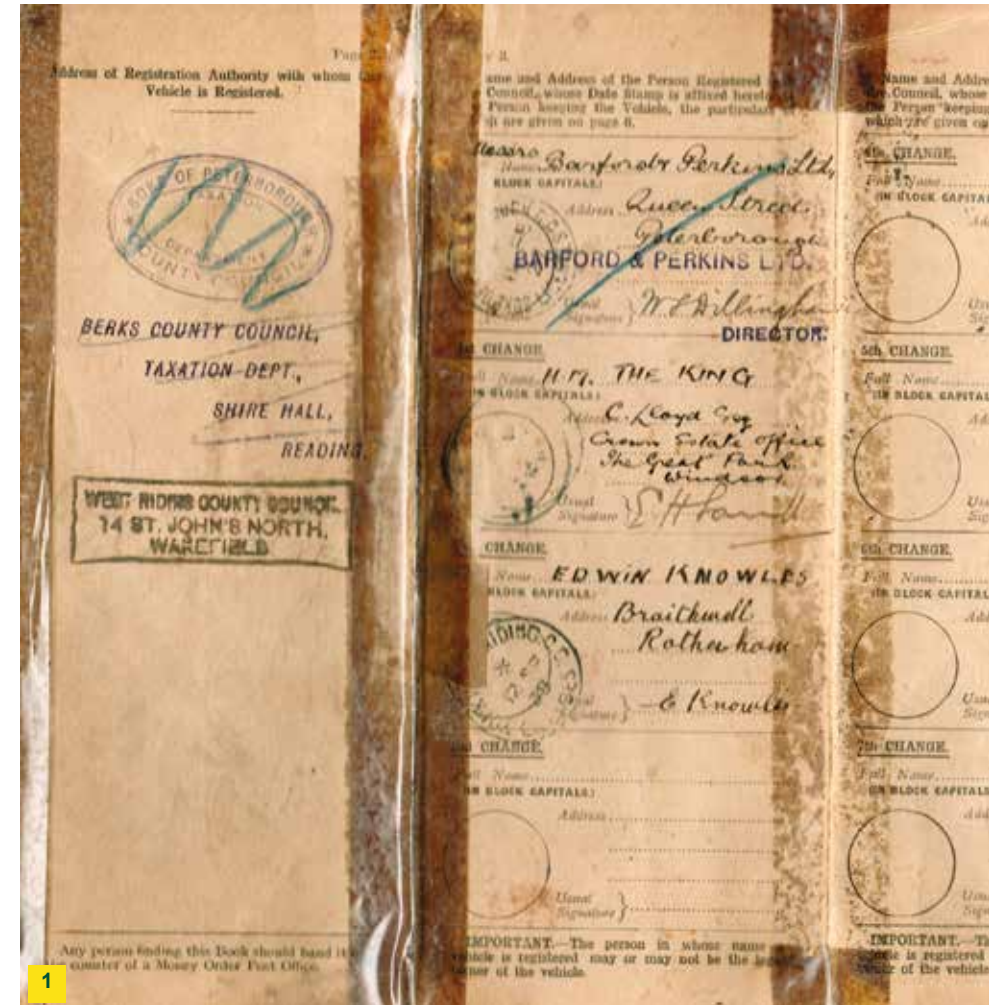 Page 2
Address of Registration Authority with whom
Vehicle is Registered.
SOKE OF PETERBOROUGH
TAXATION
DEPARTMENT
COUNTY COUNCIL
BERKS COUNTY COUNCIL,
TAXATION DEPT.,
SHIRE HALL,
READING.
WEST RIDING COUNTY COUNCIL
14 ST. JOHN'S NORTH,
WAKEFIELD
Any person finding this Book should hand it
counter of a Money Order Post Office.
1
3.
ame and Address of the Person Registered
Council, whose Date Stamp is affixed hereto
Person keeping the Vehicle, the particulars
are given on page 6.
Messrs Barford & Perkins Ltd,
Name
BLOCK CAPITALS:
Address Queen Street
Peterborough
BARFORD & PERKINS LTD.
Usual
Signature } W. Dillingham
DIRECTOR.
CHANGE.
Name H.M. THE KING
BLOCK CAPITALS:
Address C. Lloyd Esq
Crown Estate Office
The Great Park
Windsor
Usual
Signature }
CHANGE.
Name EDWIN KNOWLES
BLOCK CAPITALS:
Address Braithwell
Rotherham
RIDING C.C.
Usual
Signature } E Knowles
CHANGE.
Full Name
IN BLOCK CAPITALS:
Address
Usual
Signature }
IMPORTANT.—The person in whose name
vehicle is registered may or may not be the legal
owner of the vehicle.
Name and Addre
the Council, whose
the Person keeping
which are given on
4th CHANGE.
Full Name
(IN BLOCK CAPITAL
Ad
Usu
Sig
5th CHANGE.
Full Name
(IN BLOCK CAPITAL
Ad
Usu
Sig
6th CHANGE.
Full Name
(IN BLOCK CAPITAL
Add
Usu
Sign
7th CHANGE.
Full Name
(IN BLOCK CAPITALS
Add
Usu
Sign
IMPORTANT.—Th
vehicle is registered
owner of the vehicle